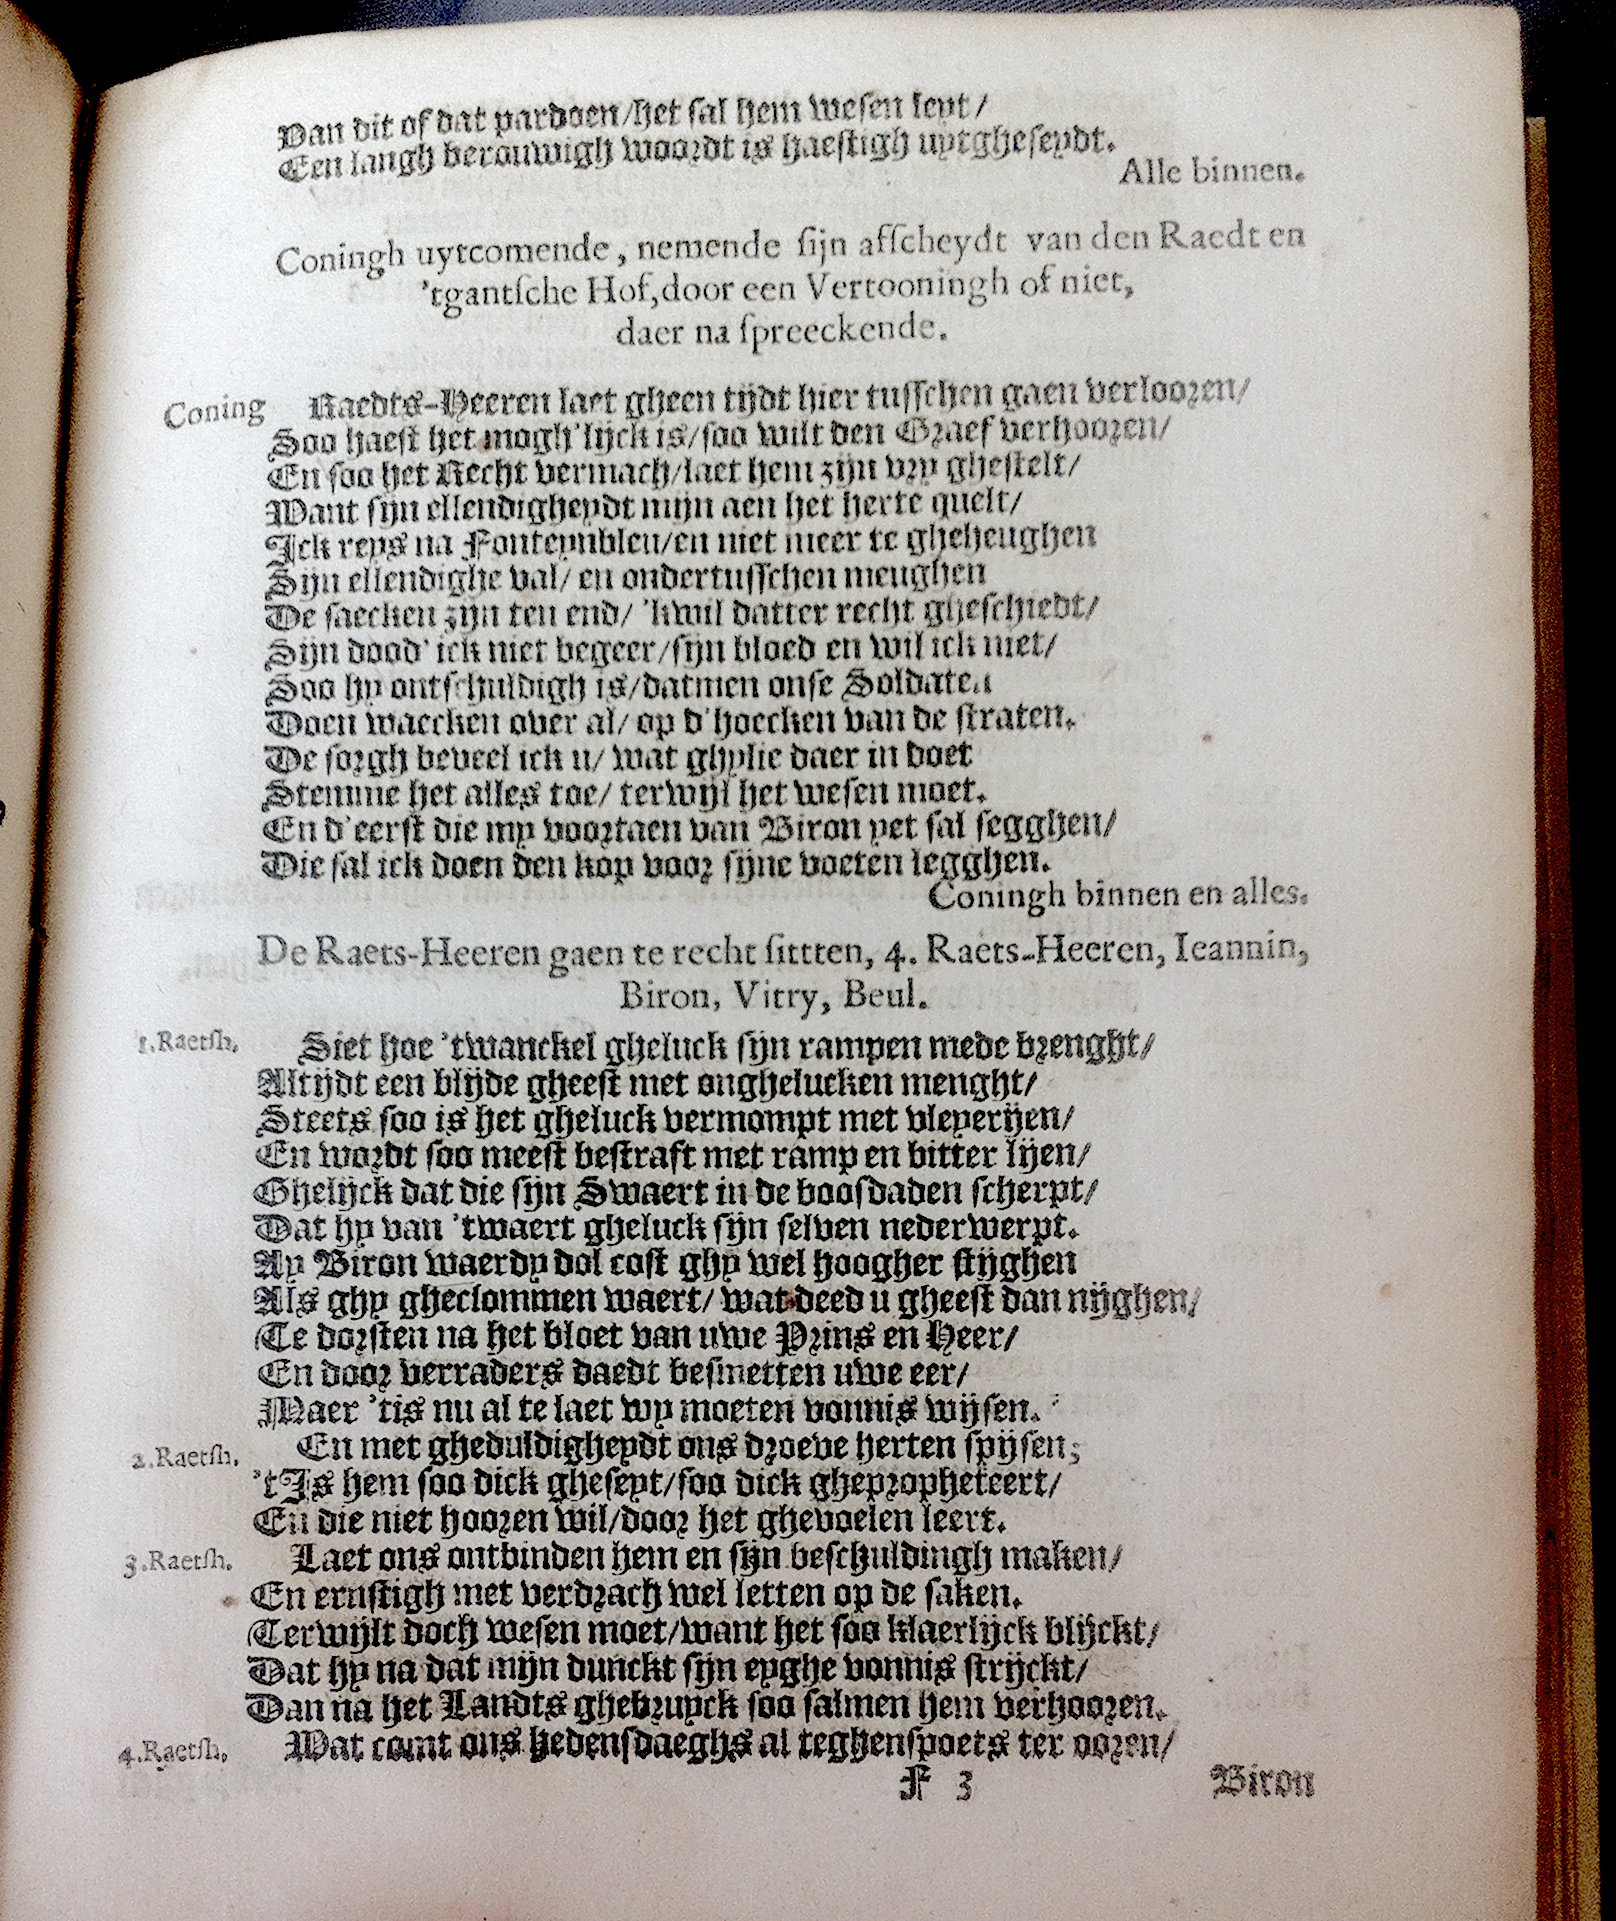 Van dit of dat pardoen/het ſal hem weſen leyt/
Een langh berouwigh woordt is haeſtigh uytgheſeydt.
Alle binnen.
Coningh uytcomende, nemende ſijn afſcheydt van den Raedt en
'tgantſche Hof,door een Vertooningh of niet,
daer na ſpreeckende.
Coning Raedts-Heeren laet gheen tijdt hier tuſſchen gaen verlooren/
Soo haeſt het mogh'lijck is/ſoo wilt den Graef verhooren/
En ſoo het Recht vermach/laet hem zijn vry gheſtelt/
Want ſijn ellendigheydt mijn aen het herte quelt/
Ick reys na Fonteynbleu/en niet meer te gheheughen
Sijn ellendighe val/ en ondertuſſchen meughen
De ſaecken zijn ten end/ 'kwil datter recht gheſchiedt/
Sijn dood' ick niet begeer/ſijn bloed en wil ick niet/
Soo hy ontſchuldigh is/datmen onſe Soldaten
Doen waecken over al/ op d'hoecken van de ſtraten.
De ſorgh beveel ick u/ wat ghylie daer in doet
Stemme het alles toe/ terwijl het weſen moet.
En d'eerſt die my voortaen van Biron yet ſal ſegghen/
Die ſal ick doen den kop voor ſijne voeten legghen.
Coningh binnen en alles.
De Raets-Heeren gaen te recht ſittten, 4. Raets-Heeren, Ieannin,
Biron, Vitry, Beul.
1.Raetſh. Siet hoe 'twanckel gheluck ſijn rampen mede brenght/
Altijdt een blijde gheeſt met onghelucken menght/
Steets ſoo is het gheluck vermompt met vleyerijen/
En wordt ſoo meeſt beſtraft met ramp en bitter lijen/
Ghelijck dat die ſijn Swaert in de boosdaden ſcherpt/
Dat hy van 'twaert gheluck ſijn ſelven nederwerpt.
Ay Biron waerdy dol coſt ghy wel hoogher ſtijghen
Als ghy gheclommen waert/ wat deed u gheeſt dan nijghen/
Te dorſten na het bloet van uwe Prins en Heer/
En door verraders daedt beſmetten uwe eer/
Maer 'tis nu al te laet wy moeten vonnis wijſen.
2.Raetſh. En met gheduldigheydt ons droeve herten ſpijſen;
't Is hem ſoo dick gheſeyt/ſoo dick ghepropheteert/
En die niet hooren wil/door het ghevoelen leert.
3.Raetſh. Laet ons ontbinden hem en ſijn beſchuldingh maken/
En ernſtigh met verdrach wel letten op de ſaken.
Terwijlt doch weſen moet/want het ſoo klaerlijck blijckt/
Dat hy na dat mijn dunckt ſijn eyghe vonnis ſtrijckt/
Dan na het Landts ghebruyck ſoo ſalmen hem verhooren.
4.Raetſh. Wat comt ons hedenſdaeghs al teghenſpoets ter ooren/
F 3 Biron